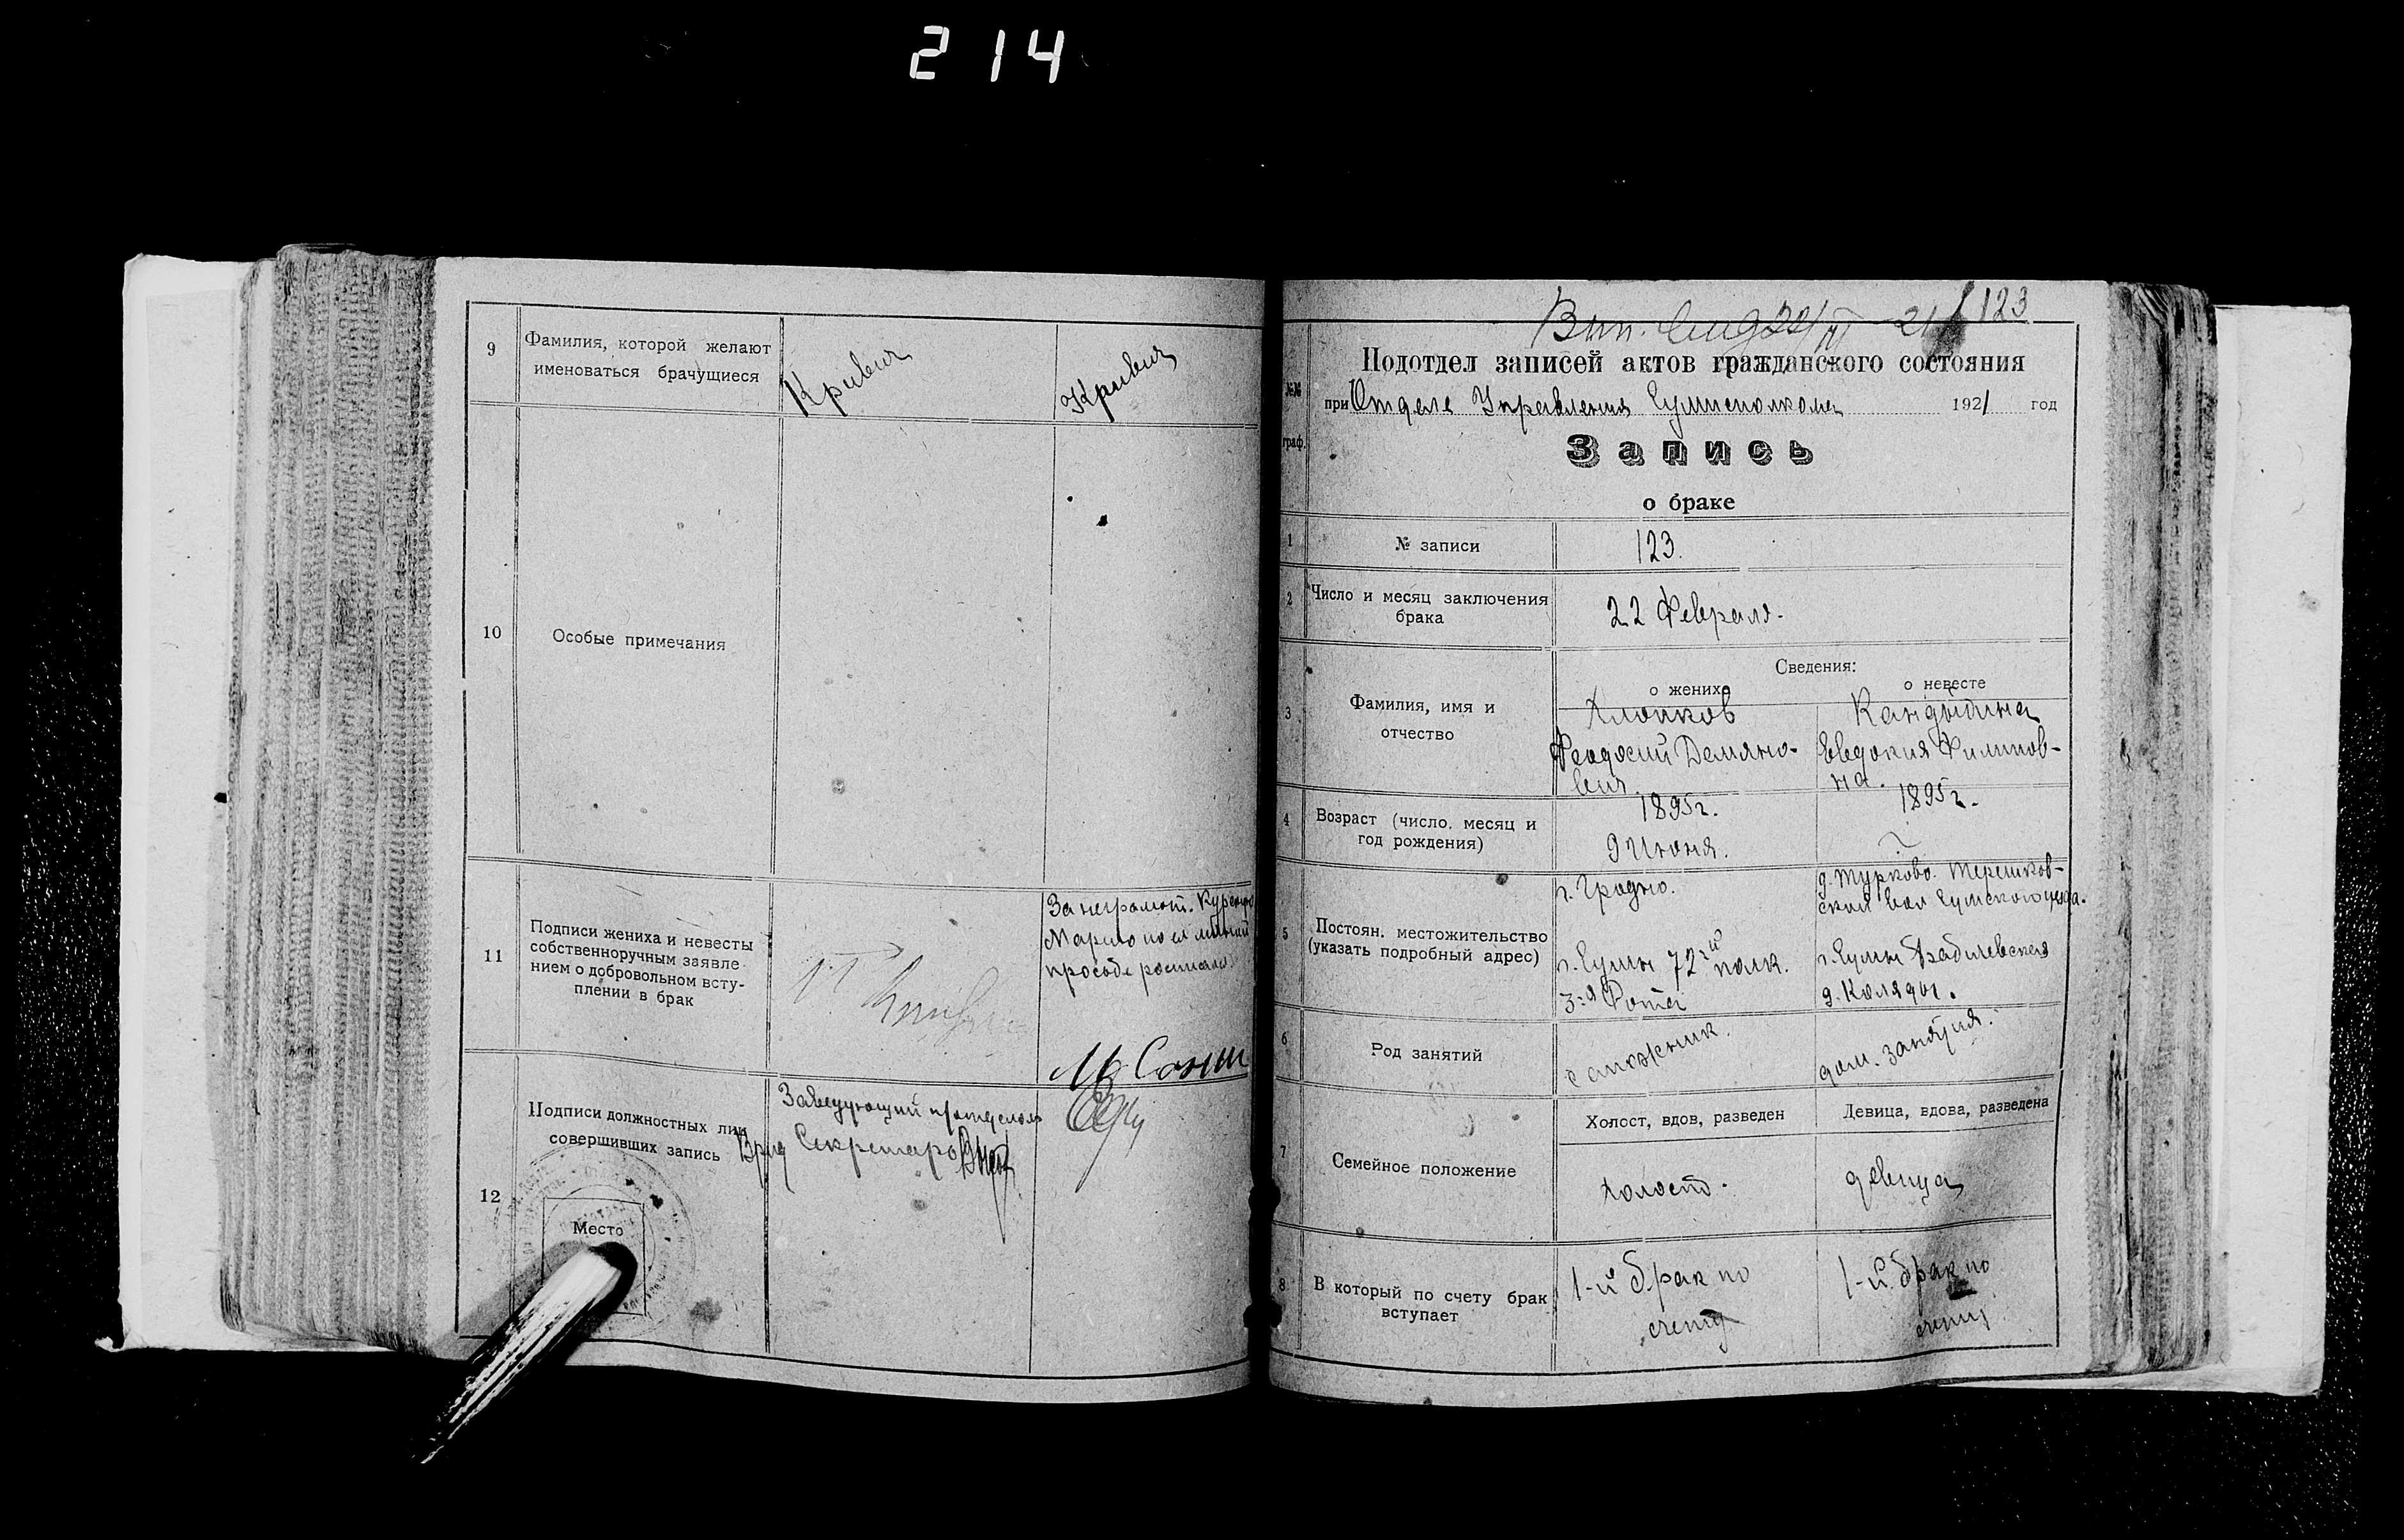 214
9
Фамилия, которой желают
именоваться брачущиеся
10
Особые примечания
11
Подписи жениха и невесты
собственноручным заявле-
нием о добровольном всту-
плении в брак
За неграмот.
Марию по ея личной
просьбе
12
Подписи должностных лиц
совершивших запись
Место
Заведующий
Врид Секретаро
123
Подотдел записей актов гражданского состояния
№№
граф.
при Отделе Управления 1921 год
Запись
о браке
1
№ записи
123.
2
Число и месяц заключения
брака
22 Февраля.
Сведения:
о женихе
о невесте
3
Фамилия, имя и
отчество
Хлопков
Феодосий Демяно-
вич
Евдокия Филипов-
на.
4
Возраст (число, месяц и
год рождения)
1895г.
9 Июня.
1895г.
?
5
Постоян. местожительство
(указать подробный адрес)
г. Гродно.
г. Сумы 72й полк.
3-я Рота
д. Турково. Терешков-
ской вол Сумского уезда.
г. Сумы
д. Коляды.
6
Род занятий
сапожник.
дом. занятия.
7
Семейное положение
Холост, вдов, разведен
Девица, вдова, разведена
холост.
девица
8
В который по счету брак
вступает
1-й брак по
счету
1-й брак по
счету